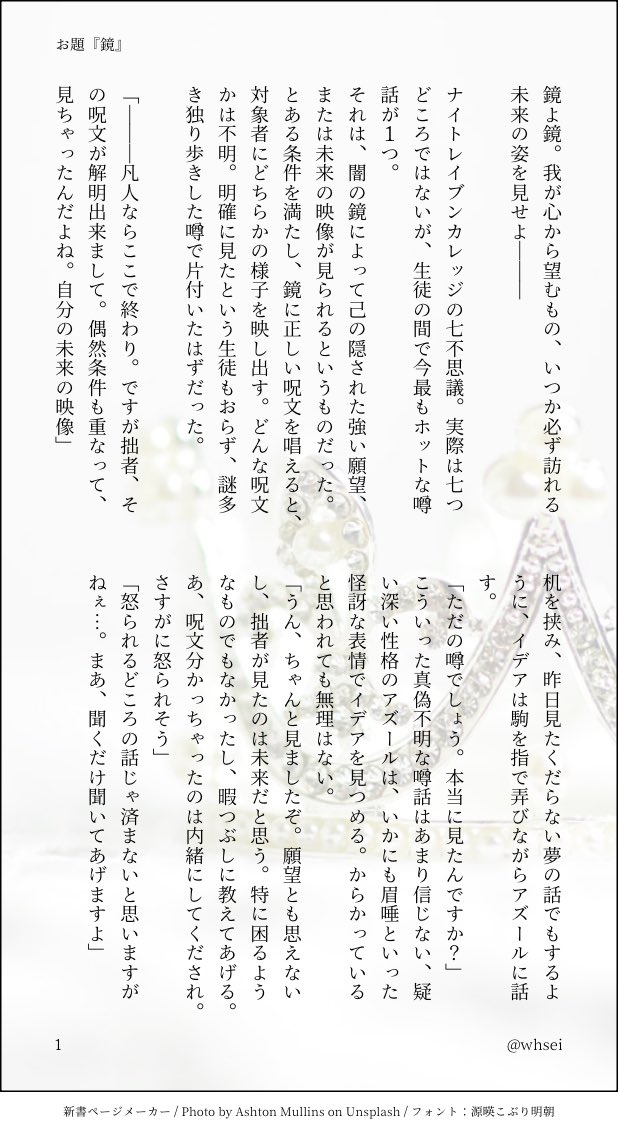 お題『鏡』
鏡よ鏡。我が心から望むもの、いつか必ず訪れる
未来の姿を見せよ――――
ナイトレイブンカレッジの七不思議。実際は七つ
どころではないが、生徒の間で今最もホットな噂
話が1つ。
それは、闇の鏡によって己の隠された強い願望、
または未来の映像が見られるというものだった。
とある条件を満たし、鏡に正しい呪文を唱えると、
対象者にどちらかの様子を映し出す。どんな呪文
かは不明。明確に見たという生徒もおらず、謎多
き独り歩きした噂で片付いたはずだった。
「――――凡人ならここで終わり。ですが拙者、そ
の呪文が解明出来まして。偶然条件も重なって、
見ちゃったんだよね。自分の未来の映像」
机を挟み、昨日見たくだらない夢の話でもするよ
うに、イデアは駒を指で弄びながらアズールに話
す。
「ただの噂でしょう。本当に見たんですか？」
こういった真偽不明な噂話はあまり信じない、疑
い深い性格のアズールは、いかにも眉唾といった
怪訝な表情でイデアを見つめる。からかっている
と思われても無理はない。
「うん、ちゃんと見ましたぞ。願望とも思えない
し、拙者が見たのは未来だと思う。特に困るよう
なものでもなかったし、暇つぶしに教えてあげる。
あ、呪文分かっちゃったのは内緒にしてくだされ。
さすがに怒られそう」
「怒られるどころの話じゃ済まないと思いますが
ねぇ…。まあ、聞くだけ聞いてあげますよ」
1
@whsei
新書ページメーカー / Photo by Ashton Mullins on Unsplash / フォント：源暎こぶり明朝